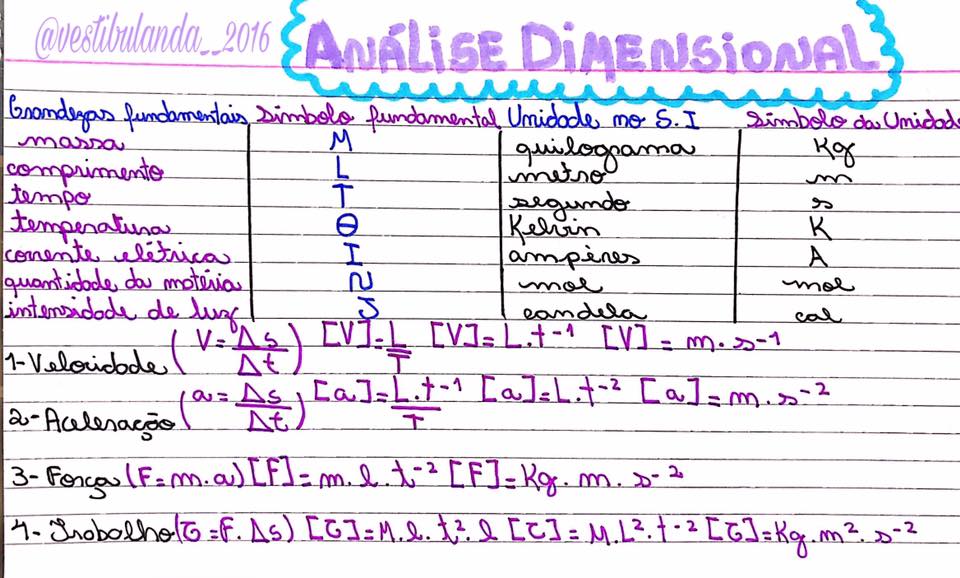 @vestibulanda__2016
ANÁLISE DIMENSIONAL
Grandezas fundamentais símbolo fundamental Unidade no S.I símbolo da Unidade
massa M quilograma Kg
comprimento L metro m
tempo T segundo s
temperatura Θ Kelvin K
corrente elétrica I ampéres A
quantidade da matéria N mol mol
intensidade de luz J candela cal
1-Velocidade (V=Δs/Δt) [V]=L/T [V]=L.t⁻¹ [V]=m.s⁻¹
2-Aceleração (a=Δs/Δt) [a]=L.t⁻¹/T [a]=L.t⁻² [a]=m.s⁻²
3-Força (F=m.a) [F]=m.l.t⁻² [F]=Kg.m.s⁻²
4-Trabalho (τ=F.Δs) [τ]=M.l.t².l [τ]=M.L².t⁻² [τ]=Kg.m².s⁻²